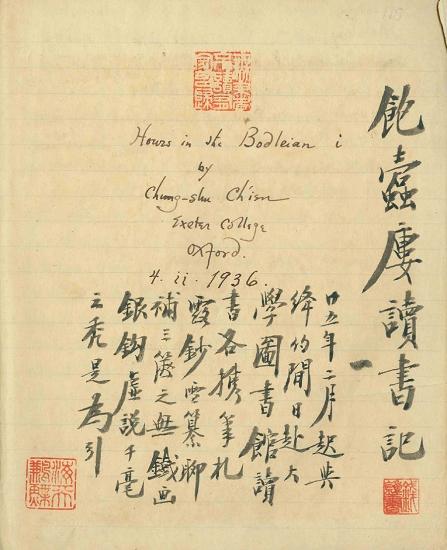 飽蠹廔讀書記 一
Hours in the Bodleian i
by
Chung-shu Ch'ien
Exeter College
Oxford.
4. ii. 1936.
廿五年二月起與
絳約間日赴大
學圖書館讀
書各携筆札
露鈔雪纂聊
補三篋之無鐵畫
銀鈎虛說千毫
之禿是為引